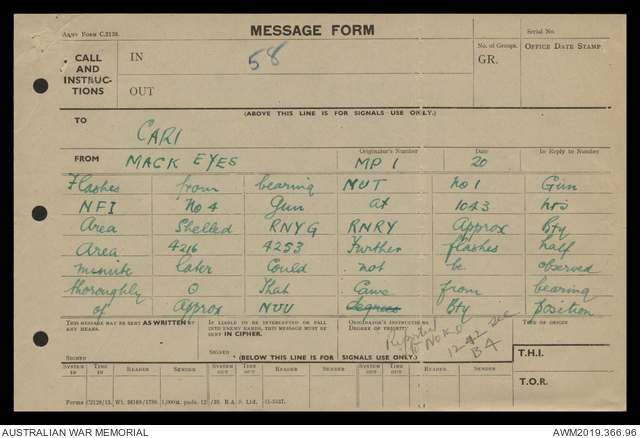 ARMY FORM C.2128.
MESSAGE FORM
Serial No.
CALL AND INSTRUC- TIONS
IN
58
No. of Groups. GR.
OFFICE DATE STAMP
OUT
(ABOVE THIS LINE IS FOR SIGNALS USE ONLY.)
TO
CARI
FROM MACK EYES
Originator's Number MP 1
Date 20
In Reply to Number
Flashes from bearing NUT no 1 Gun
NFI No 4 Gun at 1043 hrs
Area Shelled RNYG RNRY Approx Bty
Area 4216 4253 Further flashes half
minute later Could not be observed
thoroughly O That Came from bearing
of Approx NUU Degrees Bty position
THIS MESSAGE MAY BE SENT AS WRITTEN BY ANY MEANS.
IF LIABLE TO BE INTERCEPTED OR FALL INTO ENEMY HANDS, THIS MESSAGE MUST BE SENT IN CIPHER.
ORIGINATOR'S INSTRUCTIONS DEGREE OF PRIORITY
TIME OF ORIGIN
NOKO
1242
BA
SIGNED
SIGNED
(BELOW THIS LINE IS FOR SIGNALS USE ONLY.)
T.H.I.
SYSTEM IN TIME IN READER SENDER SYSTEM OUT TIME OUT READER SENDER SYSTEM OUT TIME OUT READER SENDER
T.O.R.
Forms C2128/13. Wt. 36169/1798. 1,000M. pads. 12/39. B.& S. Ltd. 51-5337.
AUSTRALIAN WAR MEMORIAL
AWM2019.366.96